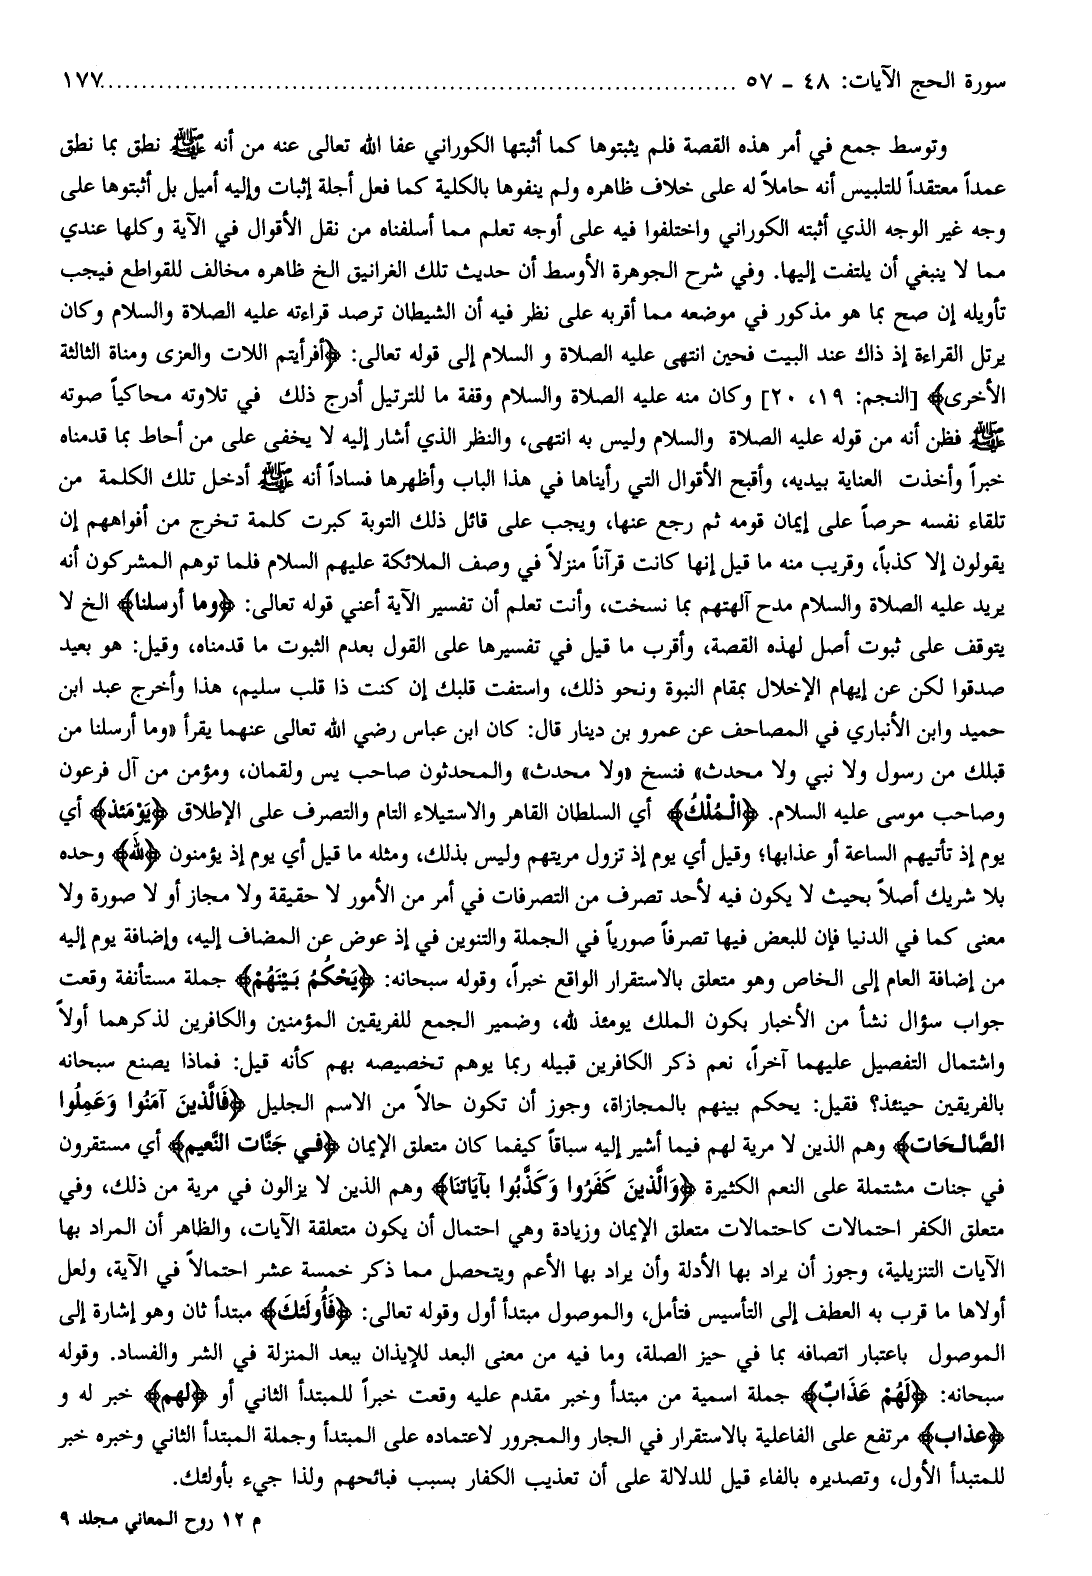 سورة الحج الآيات: ٤٨ - ٥٧ ........................................................................ ١٧٧
وتوسط جمع في أمر هذه القصة فلم يثبتوها كما أثبتها الكوراني عفا الله تعالى عنه من أنه ﷺ نطق بما نطق
عمداً معتقداً للتلبيس أنه حاملاً له على خلاف ظاهره ولم ينفوها بالكلية كما فعل أجلة إثبات وإليه أميل بل أثبتوها على
وجه غير الوجه الذي أثبته الكوراني واختلفوا فيه على أوجه تعلم مما أسلفناه من نقل الأقوال في الآية وكلها عندي
مما لا ينبغي أن يلتفت إليها. وفي شرح الجوهرة الأوسط أن حديث تلك الغرانيق الخ ظاهره مخالف للقواطع فيجب
تأويله إن صح بما هو مذكور في موضعه مما أقربه على نظر فيه أن الشيطان ترصد قراءته عليه الصلاة والسلام وكان
يرتل القراءة إذ ذاك عند البيت فحين انتهى عليه الصلاة و السلام إلى قوله تعالى: ﴿أفرأيتم اللات والعزى ومناة الثالثة
الأخرى﴾ [النجم: ١٩، ٢٠] وكان منه عليه الصلاة والسلام وقفة ما للترتيل أدرج ذلك في تلاوته محاكياً صوته
ﷺ فظن أنه من قوله عليه الصلاة والسلام وليس به انتهى، والنظر الذي أشار إليه لا يخفى على من أحاط بما قدمناه
خبراً وأخذت العناية بيديه، وأقبح الأقوال التي رأيناها في هذا الباب وأظهرها فساداً أنه ﷺ أدخل تلك الكلمة من
تلقاء نفسه حرصاً على إيمان قومه ثم رجع عنها، ويجب على قائل ذلك التوبة كبرت كلمة تخرج من أفواههم إن
يقولون إلا كذباً، وقريب منه ما قيل إنها كانت قرآناً منزلاً في وصف الملائكة عليهم السلام فلما توهم المشركون أنه
يريد عليه الصلاة والسلام مدح آلهتهم بما نسخت، وأنت تعلم أن تفسير الآية أعني قوله تعالى: ﴿وما أرسلنا﴾ الخ لا
يتوقف على ثبوت أصل لهذه القصة، وأقرب ما قيل في تفسيرها على القول بعدم الثبوت ما قدمناه، وقيل: هو بعيد
صدقوا لكن عن إيهام الإخلال بمقام النبوة ونحو ذلك، واستفت قلبك إن كنت ذا قلب سليم، هذا وأخرج عبد ابن
حميد وابن الأنباري في المصاحف عن عمرو بن دينار قال: كان ابن عباس رضي الله تعالى عنهما يقرأ «وما أرسلنا من
قبلك من رسول ولا نبي ولا محدث» فنسخ «ولا محدث» والمحدثون صاحب يس ولقمان، ومؤمن من آل فرعون
وصاحب موسى عليه السلام. ﴿الْمُلْكُ﴾ أي السلطان القاهر والاستيلاء التام والتصرف على الإطلاق ﴿يَوْمَئذ﴾ أي
يوم إذ تأتيهم الساعة أو عذابها؛ وقيل أي يوم إذ تزول مريتهم وليس بذلك، ومثله ما قيل أي يوم إذ يؤمنون ﴿لله﴾ وحده
بلا شريك أصلاً بحيث لا يكون فيه لأحد تصرف من التصرفات في أمر من الأمور لا حقيقة ولا مجاز أو لا صورة ولا
معنى كما في الدنيا فإن للبعض فيها تصرفاً صورياً في الجملة والتنوين في إذ عوض عن المضاف إليه، وإضافة يوم إليه
من إضافة العام إلى الخاص وهو متعلق بالاستقرار الواقع خبراً، وقوله سبحانه: ﴿يَحْكُمُ بَيْنَهُمْ﴾ جملة مستأنفة وقعت
جواب سؤال نشأ من الأخبار بكون الملك يومئذ لله، وضمير الجمع للفريقين المؤمنين والكافرين لذكرهما أولاً
واشتمال التفصيل عليهما آخراً، نعم ذكر الكافرين قبيله ربما يوهم تخصيصه بهم كأنه قيل: فماذا يصنع سبحانه
بالفريقين حينئذ؟ فقيل: يحكم بينهم بالمجازاة، وجوز أن تكون حالاً من الاسم الجليل ﴿فَالَّذينَ آمَنُوا وَعَمِلُوا
الصَّالحَات﴾ وهم الذين لا مرية لهم فيما أشير إليه سباقاً كيفما كان متعلق الإيمان ﴿في جَنَّات النَّعيم﴾ أي مستقرون
في جنات مشتملة على النعم الكثيرة ﴿وَالَّذينَ كَفَرُوا وَكَذَّبُوا بآيَاتنَا﴾ وهم الذين لا يزالون في مرية من ذلك، وفي
متعلق الكفر احتمالات كاحتمالات متعلق الإيمان وزيادة وهي احتمال أن يكون متعلقة الآيات، والظاهر أن المراد بها
الآيات التنزيلية، وجوز أن يراد بها الأدلة وأن يراد بها الأعم ويتحصل مما ذكر خمسة عشر احتمالاً في الآية، ولعل
أولاها ما قرب به العطف إلى التأسيس فتأمل، والموصول مبتدأ أول وقوله تعالى: ﴿فَأُولَئكَ﴾ مبتدأ ثان وهو إشارة إلى
الموصول باعتبار اتصافه بما في حيز الصلة، وما فيه من معنى البعد للإيذان ببعد المنزلة في الشر والفساد. وقوله
سبحانه: ﴿لَهُمْ عَذَابٌ﴾ جملة اسمية من مبتدأ وخبر مقدم عليه وقعت خبراً للمبتدأ الثاني أو ﴿لهم﴾ خبر له و
﴿عذاب﴾ مرتفع على الفاعلية بالاستقرار في الجار والمجرور لاعتماده على المبتدأ وجملة المبتدأ الثاني وخبره خبر
للمتبدأ الأول، وتصديره بالفاء قيل للدلالة على أن تعذيب الكفار بسبب قبائحهم ولذا جيء بأولئك.
م ١٢ روح المعاني مجلد ٩